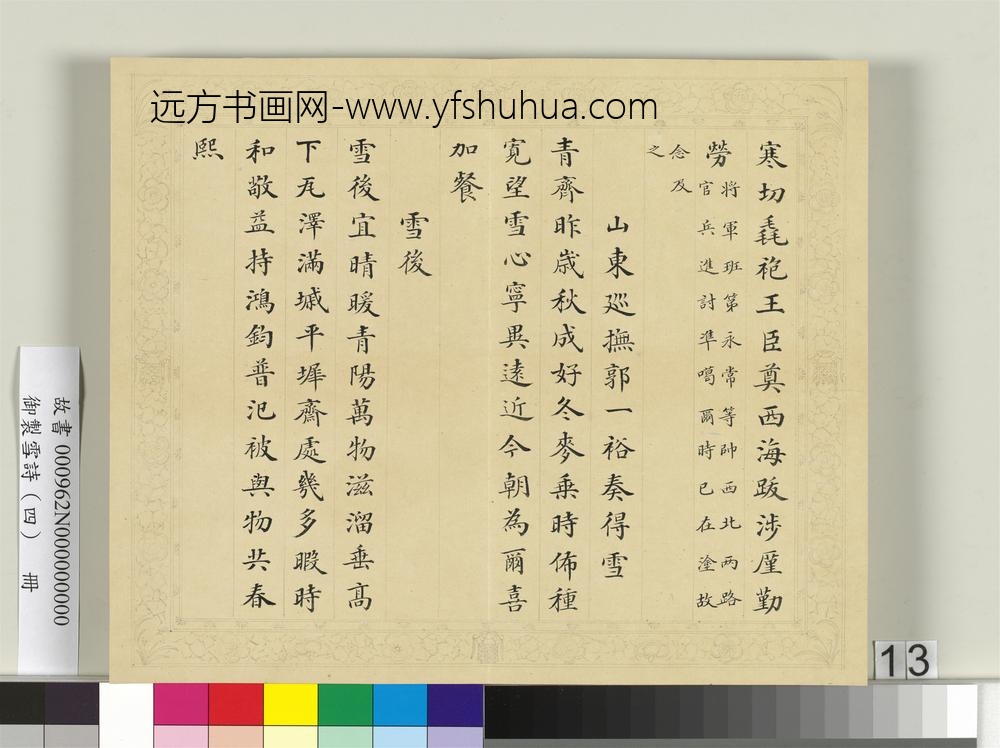 远方书画网-www.yfshuhua.com
寒切毳袍王臣奠西海跋涉廑勤
勞將軍班第永常等帥西北兩路
官兵進討準噶爾時已在塗故
念及
之
山東巡撫郭一裕奏得雪
青齊昨歳秋成好冬麥乗時佈種
寛望雪心寧異逺近今朝為爾喜
加餐
雪後
雪後宜晴暖青陽萬物滋溜垂髙
下瓦澤滿墄平墀齋處幾多暇時
和敬益持鴻鈞普氾被與物共春
熙
故書 000962N000000000
御製雪詩（四） 冊
13